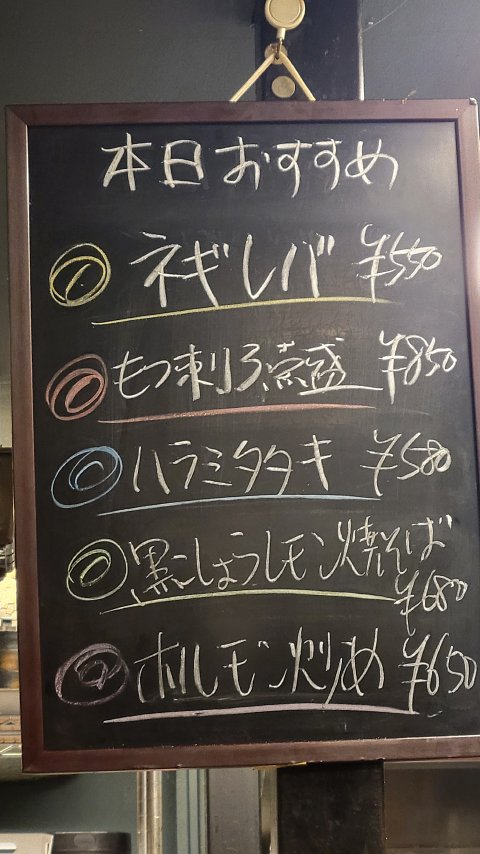 本日おすすめ
ネギレバ ¥550
もつ刺し3点盛 ¥850
ハラミタタキ ¥580
黒こしょうレモン焼そば
¥680
ホルモン炒め ¥650